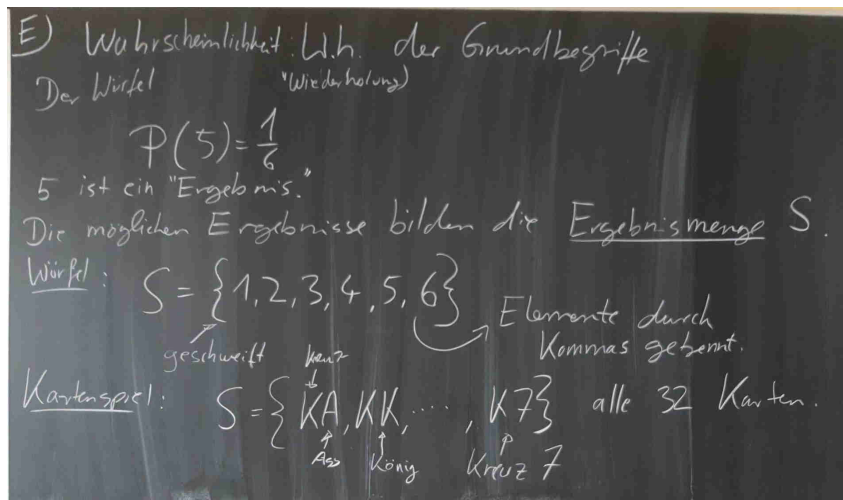 E) Wahrscheinlichkeit: W.h. der Grundbegriffe
Der Würfel "Wiederholung)
P(5) = 1/6
5 ist ein "Ergebnis."
Die möglichen Ergebnisse bilden die Ergebnismenge S.
Würfel: S = {1, 2, 3, 4, 5, 6}
geschweift
Elemente durch
Kommas getrennt.
Kreuz
Kartenspiel: S = {KA, KK, ...., K7} alle 32 Karten.
Ass König Kreuz 7